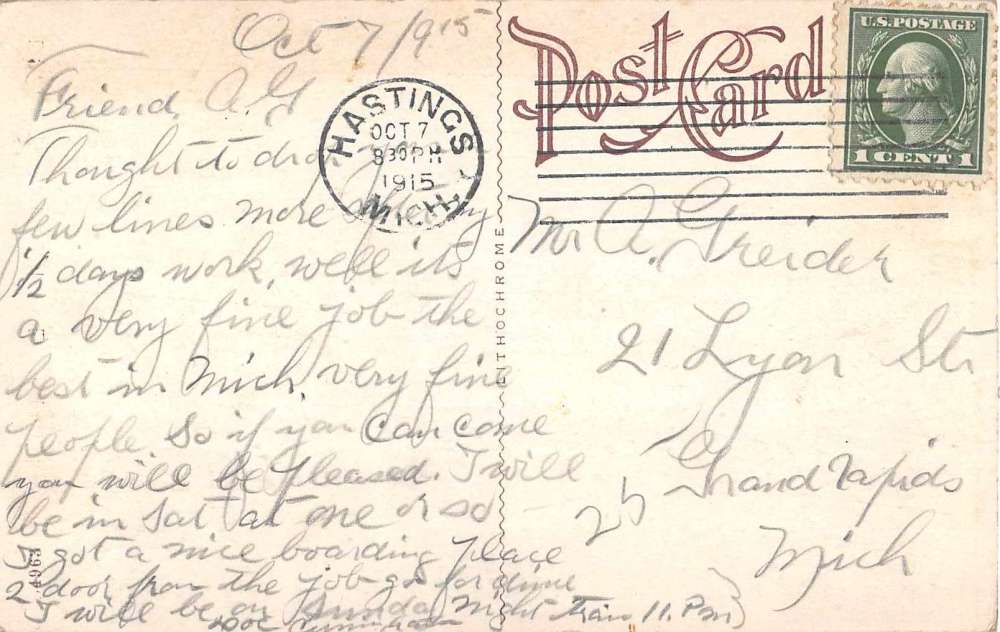 Oct 7/915
Friend, A. G
Thought to drop
few lines more after my
1/2 days work, well its
a very fine job the
best in Mich. very fine
people. So if you can come
you will be pleased. I will
be in Sat at one or so
I got a nice boarding place
2 door from the job go for dime
I will be on Sunday night train 11. Pm
HASTINGS
OCT 7
830PM
1915
MICH.
Post Card
U.S. POSTAGE
1 CENT 1
LITHOCHROME
Mr A. Greider
21 Lyon Str
Grand Rapids
Mich